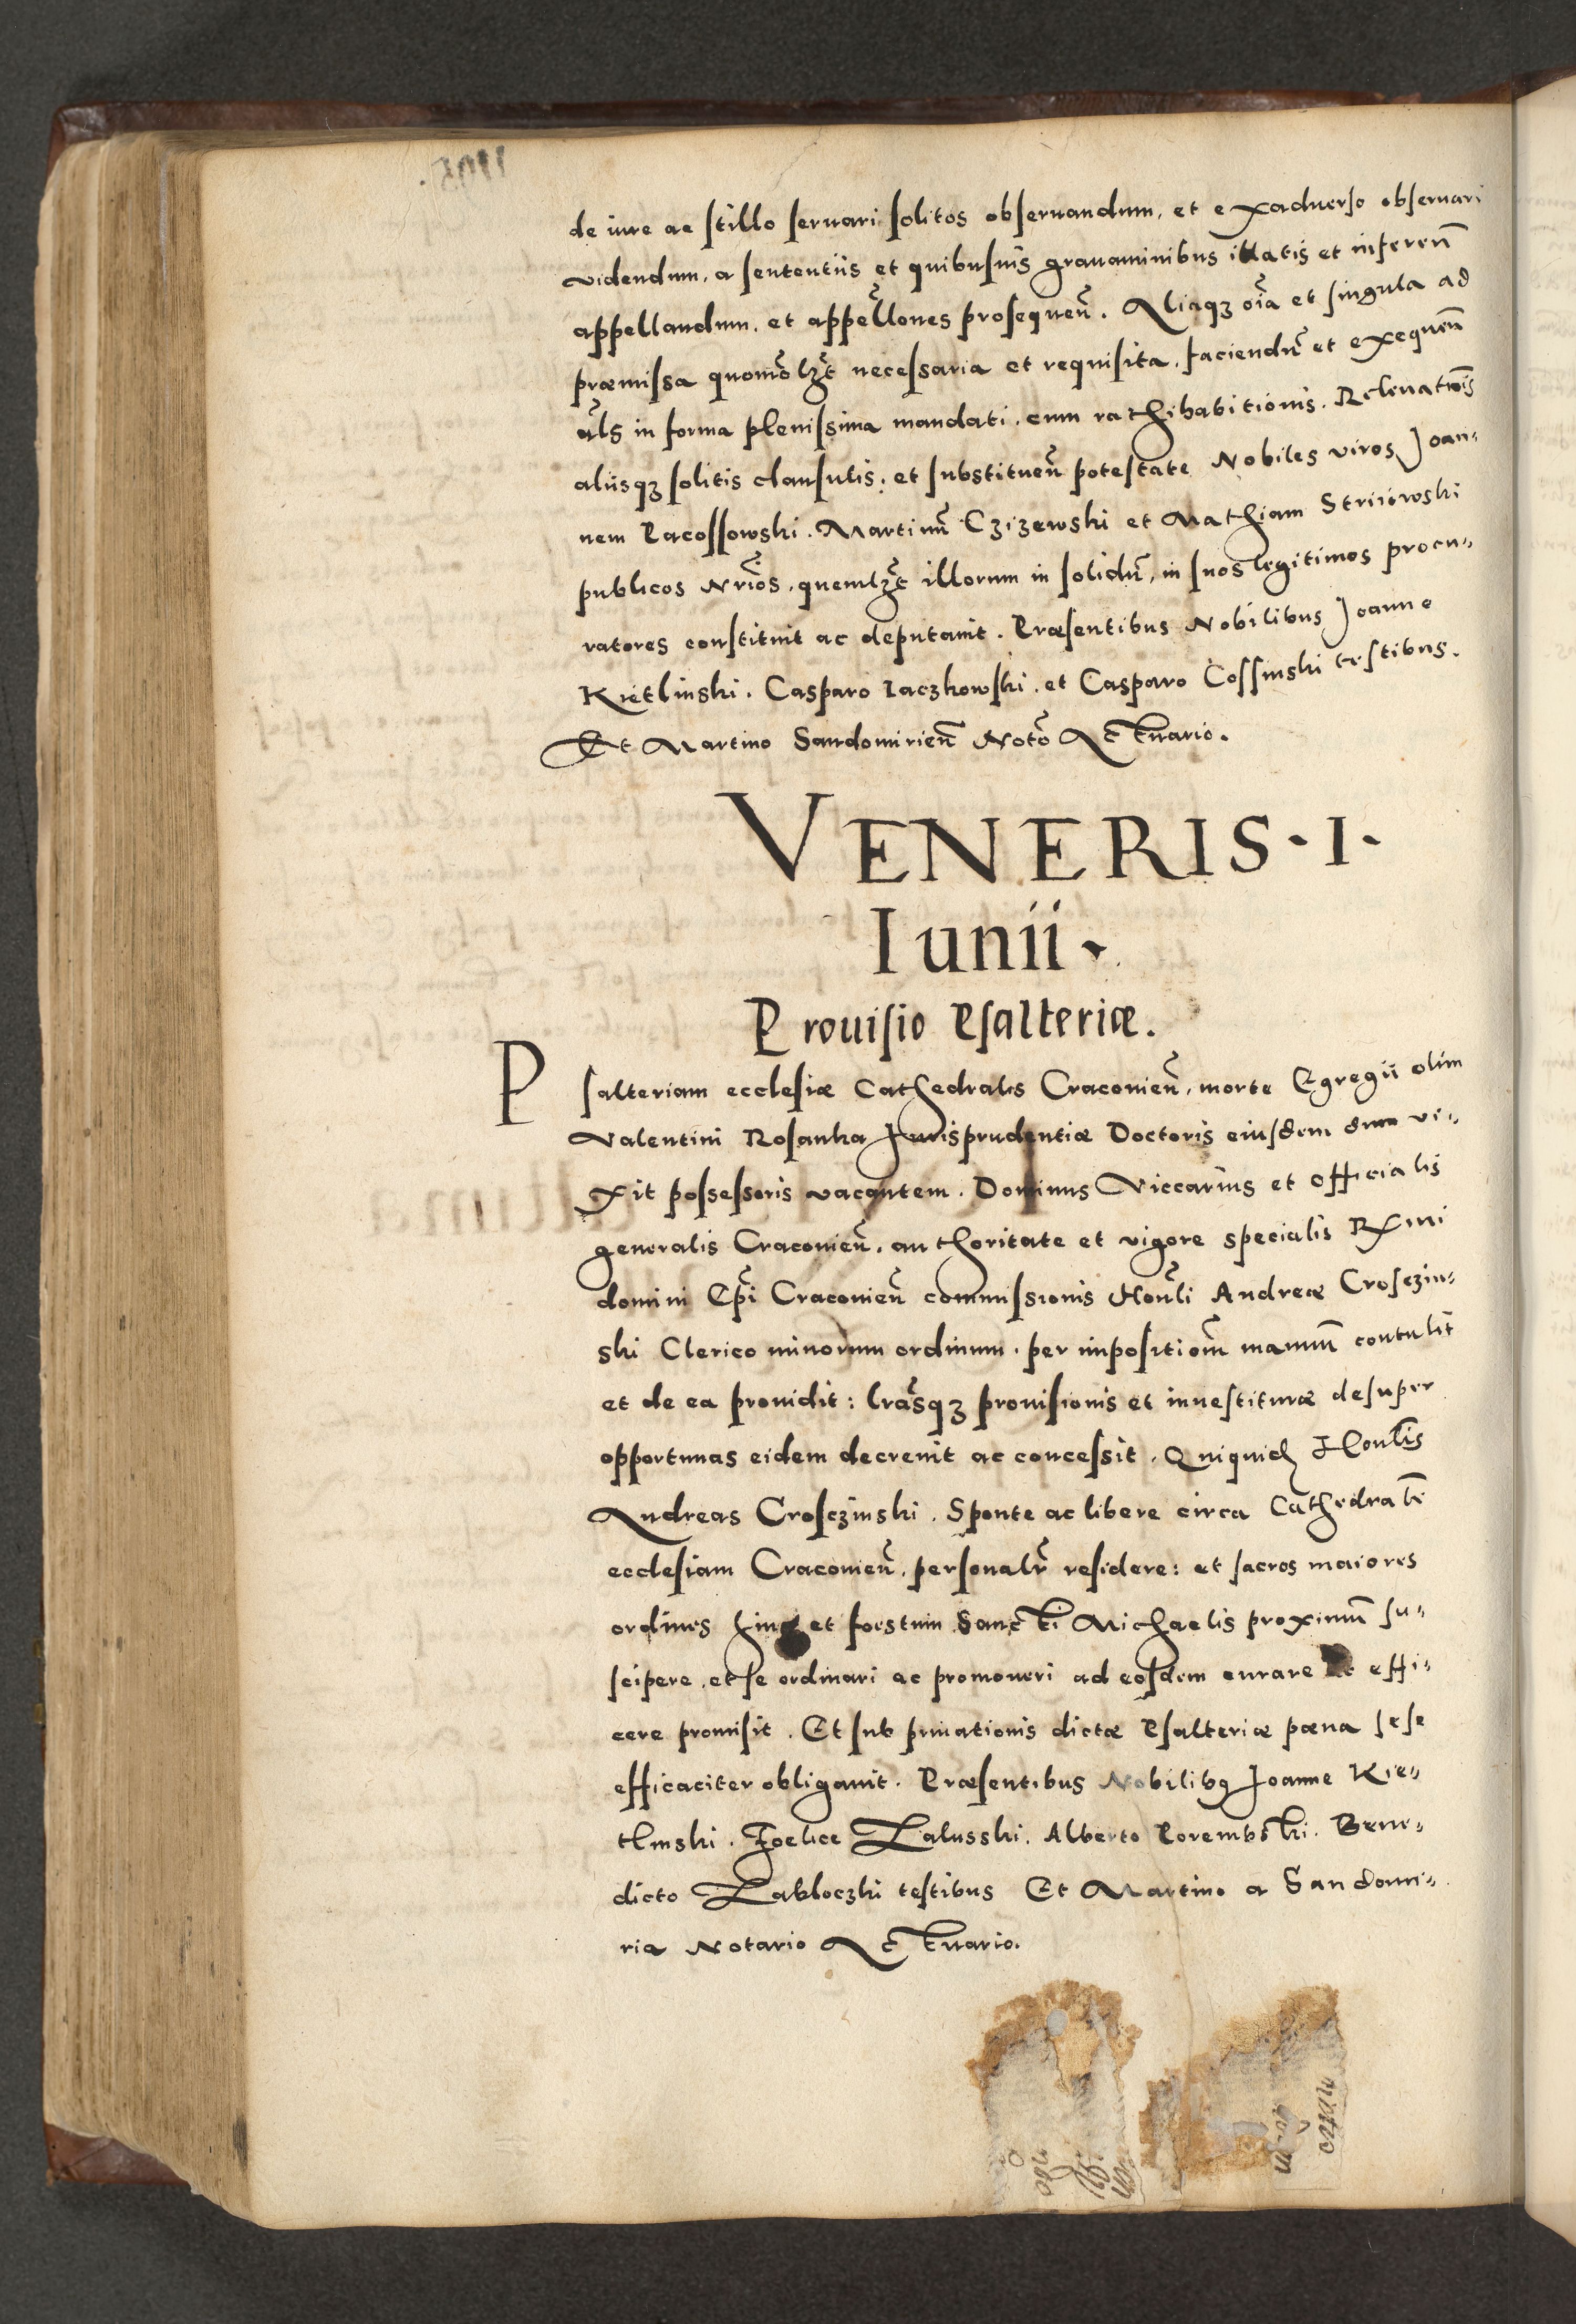 de iure ac stillo seruari solitos obseruandum, et exaduerso obseruari
videndum, a sententiis et quibusuis grauaminibus illatis et inferen̄
appellandum, et appellones prosequen̄. Aliaqꝫ oīa et singula ad
præmissa quomōlꝫt necessaria et requisita, faciendū et exequen̄
als in forma plenissima mandati, cum rathihabitionis, Releuatiōis
aliisqꝫ solitis clausulis, et substituen̄ potestate Nobiles viros Joan„
nem Pacossowski, Martinū Czizewski et Mathiam Striiowski
publicos Nrīos, quemlꝫt illorum in solidū, in suos legitimos procu„
ratores constituit ac deputauit. Præsentibus Nobilibus Joanne
Kietlinski, Casparo Iaczkowski, et Casparo Cossinski testibus.
Et Martino Sandomirien̄ Notō Actuario.
VENERIS · I ·
Iunii ·
Prouisio Psalteriæ.
Psalteriam ecclesiæ Cathedralis Cracouien̄, morte Egregii olim
Valentini Rosanka Jurisprudentiæ Doctoris eiusdem dum vi„
xit possessoris vacantem. Dominus Viccarius et Officialis
generalis Cracouien̄, authoritate et vigore specialis Rx̄mi
domini Ep̄i Cracouien̄ commissionis Honli Andreæ Crosczin„
ski Clerico minorum ordinum, per impositionē manuū contulit
et de ea prouidit: lrāsqꝫ prouisionis et inuestituræ desuper
opportunas eidem decreuit ac concessit. Quiquid Honlis
Andreas Crosczinski, Sponte ac libere circa Cathedralē
ecclesiam Cracouien̄, personalr̄ residere: et sacros maiores
ordines hinc et foestum Sancti Michaelis proximū su„
scipere, et se ordinari ac promoueri ad eosdem curare et effi„
cere promisit. Et sub priuationis dictæ Psalteriæ pœna sese
efficaciter obligauit. Præsentibus Nobilibꝰ Joanne Kie„
tlinski, Foelice Zalusski, Alberto Porembski, Bene„
dicto Zabloczki testibus Et Martino a Sandomi„
ria Notario Actuario.